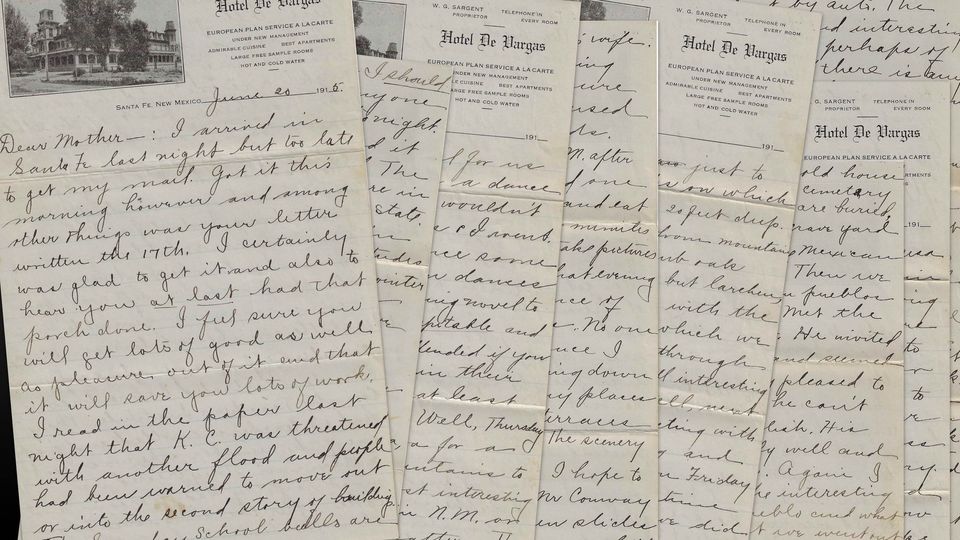 Hotel De Vargas
EUROPEAN PLAN SERVICE A LA CARTE
UNDER NEW MANAGEMENT
ADMIRABLE CUISINE BEST APARTMENTS
LARGE FREE SAMPLE ROOMS
HOT AND COLD WATER
SANTA FE, NEW MEXICO June 20 1915.
Dear Mother—: I arrived in
Santa Fe last night but too late
to get my mail. Got it this
morning however and among
other things was your letter
written the 17th. I certainly
was glad to get it and also to
hear you at last had that
porch done. I feel sure you
will get lots of good as well
as pleasure out of it and that
it will save you lots of work.
I read in the paper last
night that K. C. was threatened
with another flood and people
had been warned to move out
or into the second story of building
School bells are
I should
yone
night.
d it
The
re in
state
W. G. SARGENT
PROPRIETOR
TELEPHONE IN
EVERY ROOM
Hotel De Vargas
EUROPEAN PLAN SERVICE A LA CARTE
UNDER NEW MANAGEMENT
BEST APARTMENTS
LARGE FREE SAMPLE ROOMS
HOT AND COLD WATER
191
for us
a dance
wouldn't
& I went.
ce some
dances
ing novel to
itable and
ended if you
in their
at least
Well, Thursday
for a
untains to
st interesting
in N.M. on
wife.
ing
ure
used
ds.
M. after
d one
and eat
minutes
ake pictures
hat evening
ce of
No one
nce I
ing down
y places
The scenery
I hope to
Mr Conway
en slides
W. G. SARGENT
PROPRIETOR
TELEPHONE IN
EVERY ROOM
Hotel De Vargas
EUROPEAN PLAN SERVICE A LA CARTE
UNDER NEW MANAGEMENT
ADMIRABLE CUISINE BEST APARTMENTS
LARGE FREE SAMPLE ROOMS
HOT AND COLD WATER
191
just to
on which
20 feet deep.
from mountain
ub oak
but larchen
with the
which we
through
interesting
ell, next
ting with
and
Friday
we did
by auto. The
d interesting
perhaps of
there is any
W. G. SARGENT
PROPRIETOR
TELEPHONE IN
EVERY ROOM
Hotel De Vargas
EUROPEAN PLAN SERVICE A LA CARTE
old house
cemetary
are buried.
rave yard
Mexican
Then we
pueblos
met the
He invited
and seemed
pleased to
he can't
lish. His
y well and
Again I
he interesting
eblo and what
we went out
191